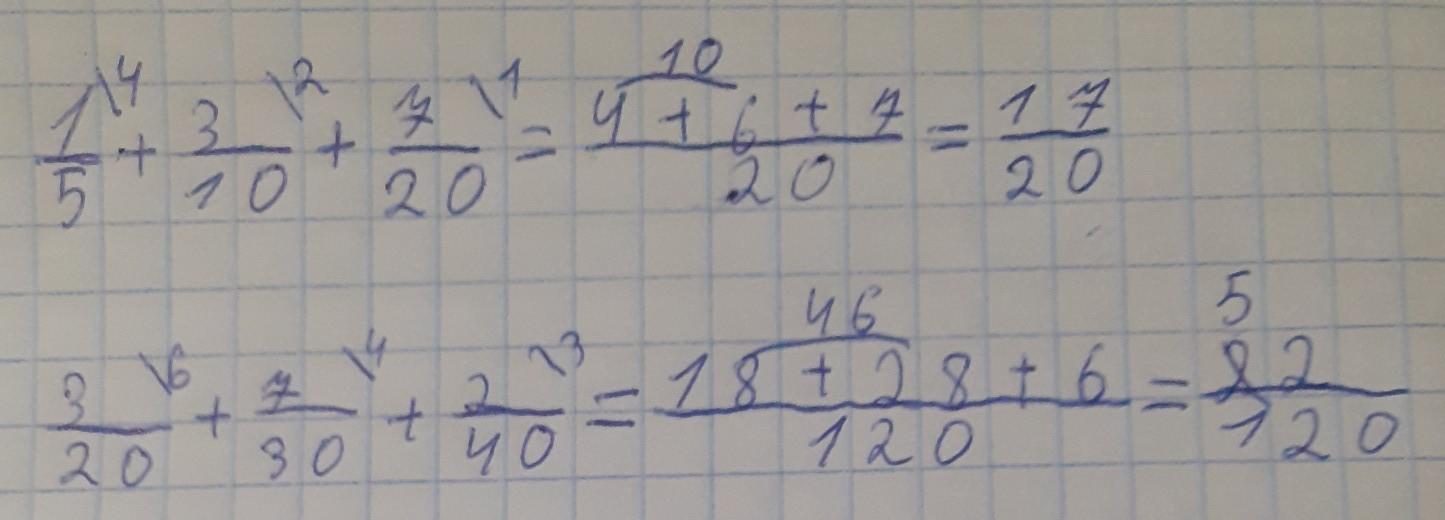 1/5 \4 + 3/10 \2 + 7/20 \1 = (4 + 6 + 7)/20 = 17/20
10
3/20 \6 + 7/30 \4 + 2/40 \3 = (18 + 28 + 6)/120 = 52/120
46